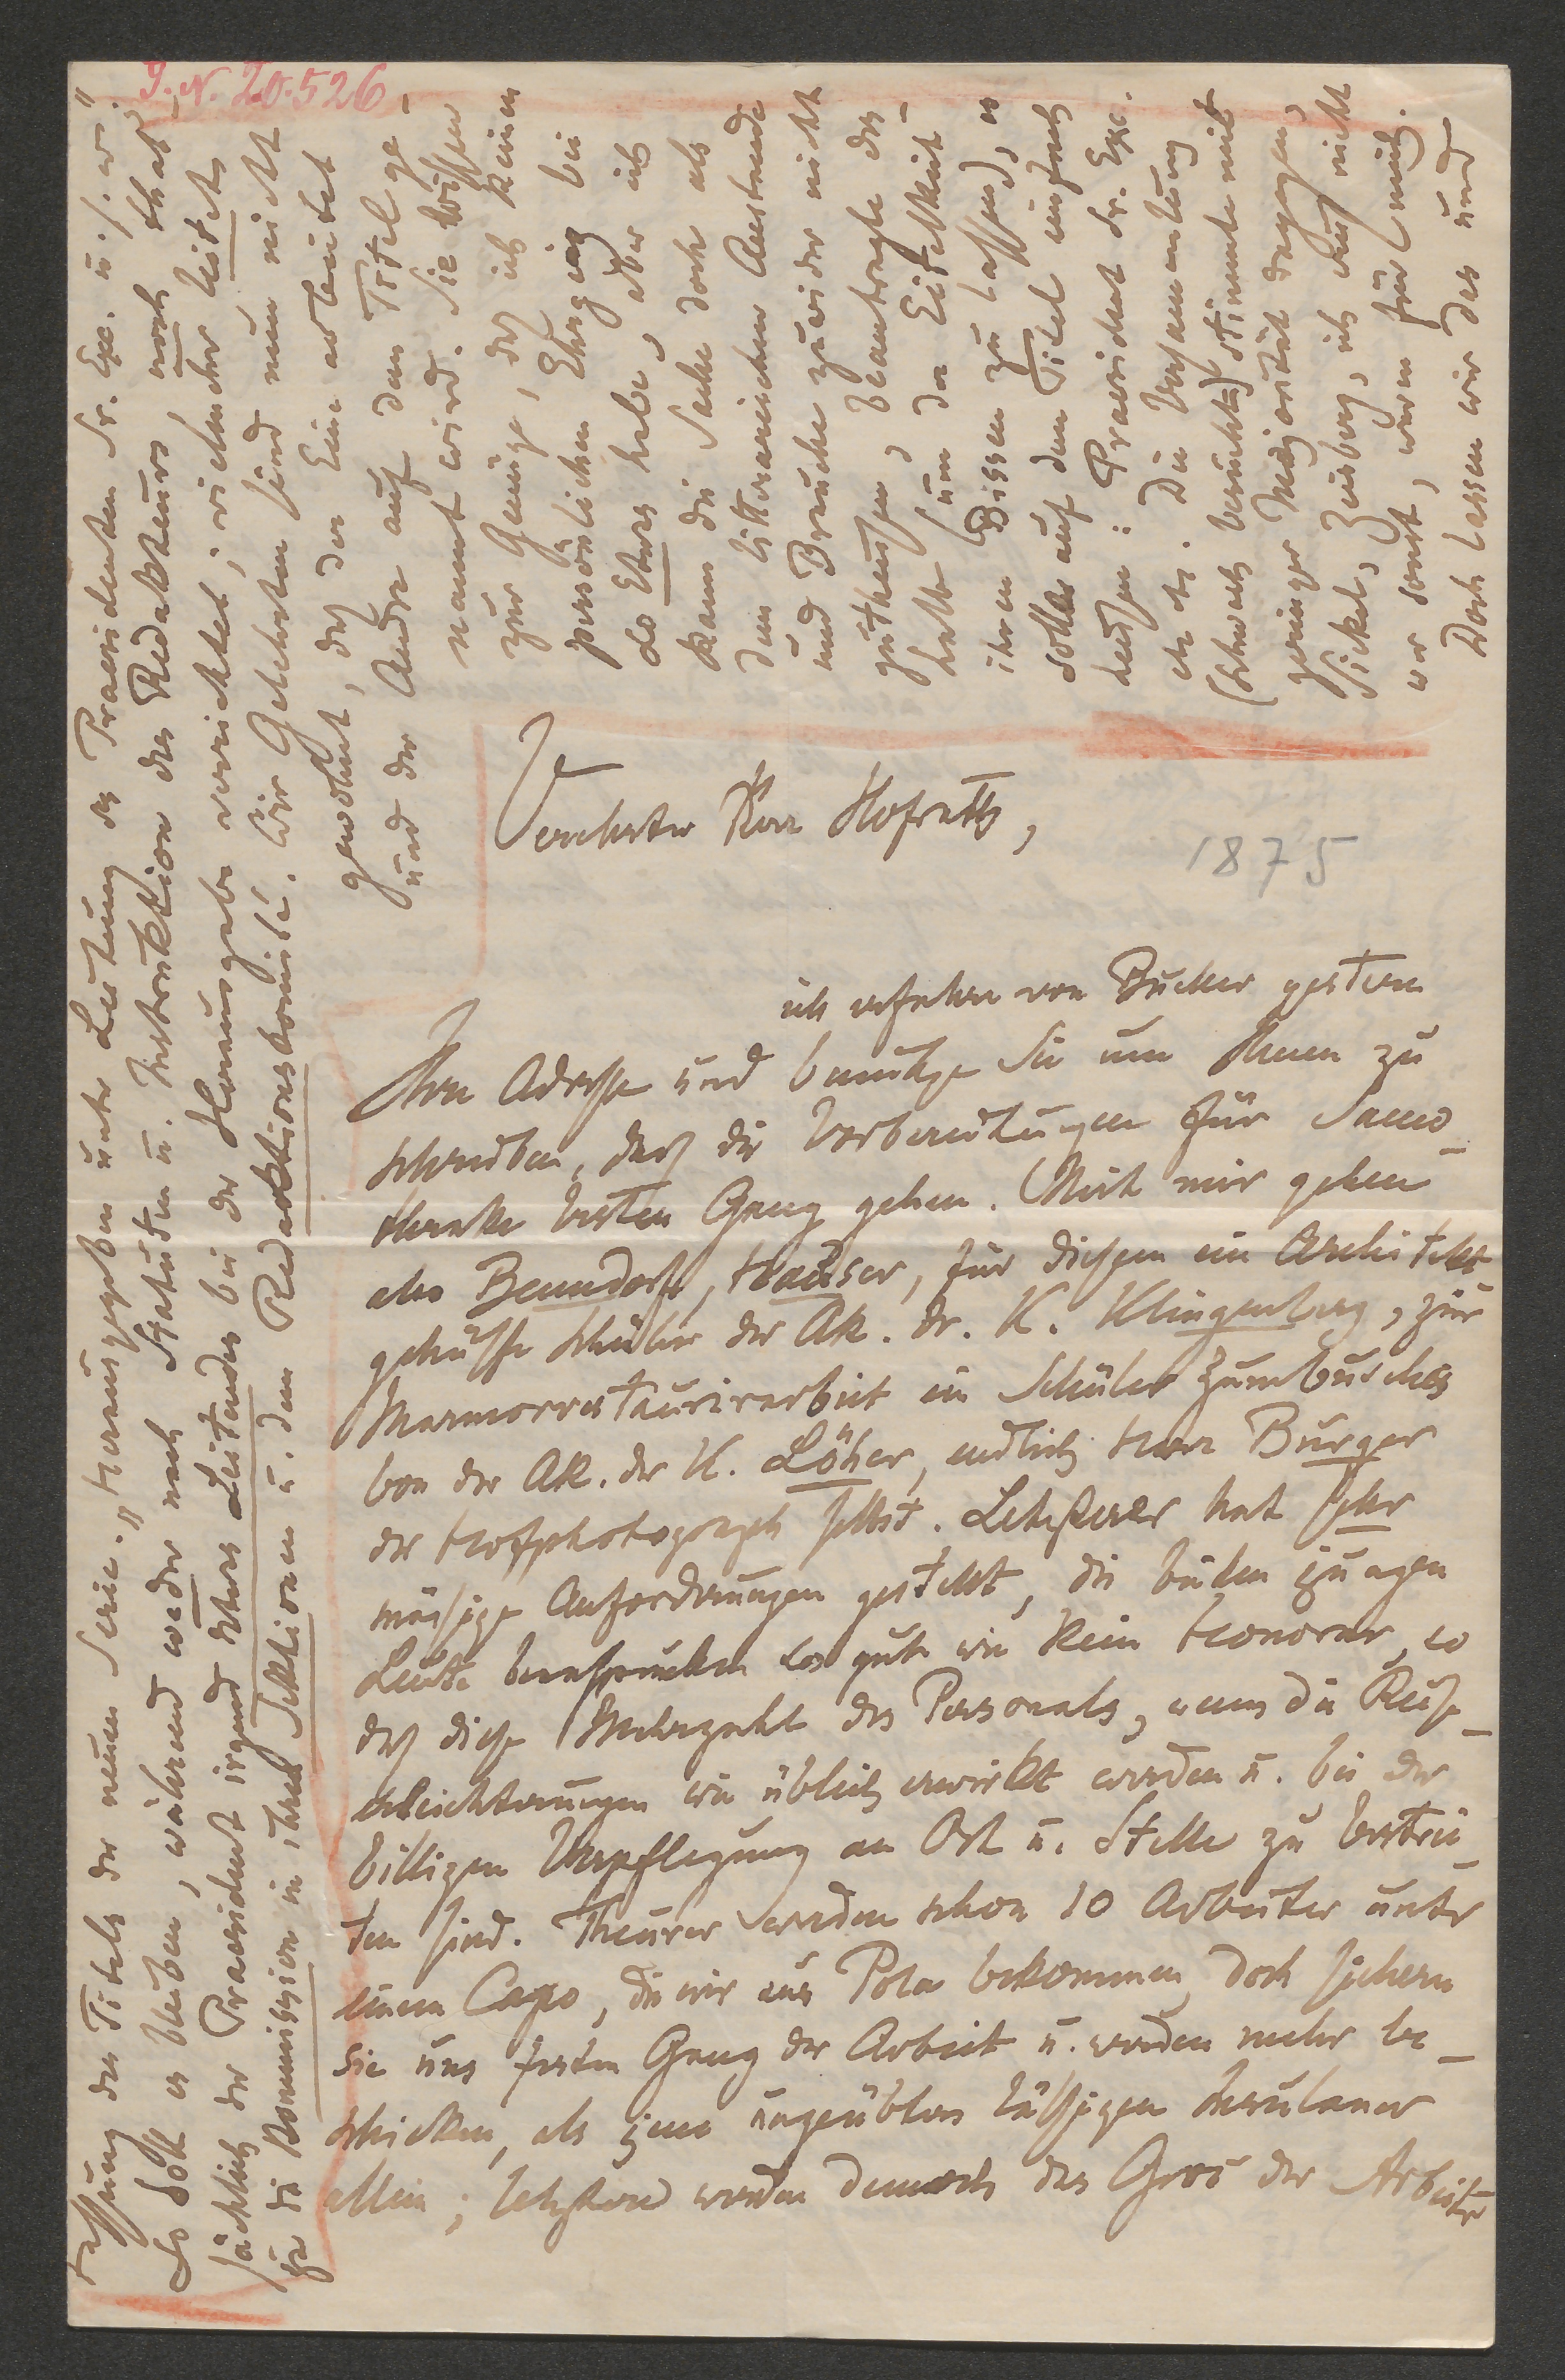 J. N. 20.526
1875
Verehrter Herr Hofrath,
ich erfahre von Bucher gestern
Ihre Adresse und benutze Sie um Ihnen zu
schreiben, daß die Vorbereitungen für Samo-
thrake besten Gang gehen. Mit mir gehen
also Benndorf, Hauser, für diesen ein Architekt
gehülfe Schüler der Ak. dr. K. Klingenberg, zur
Marmorrestaurirarbeit ein Schüler Zumbuschs
von der Ak. der K. Löher, endlich Herr Burger
der Hofphotograph selbst. Letzterer hat sehr
mäßige Anforderungen gestellt, die beiden jungen
Leute beanspruchen so gut wie kein Honorar, so
daß diese Mehrzahl des Personals, wenn die Reise-
erleichterungen wie üblich erwirkt werden u. bei der
billigen Verpflegung an Ort u. Stelle zu bestrei-
ten sind. Theurer werden schon 10 Arbeiter unter
einem Capo, die wir aus Pola bekommen, doch sichern
sie uns festen Gang der Arbeit u. werden mehr be-
schicken, als jene ungeübten läßigen Insulaner
allein; letztere werden dennoch das Gros der Arbeiter
fassung des Titels der neuen Serie. „Herausgegeben unter Leitung des Praesidenten Sr. Exc. u. s. w."
So soll es bleiben, während weder nach Statuten u. Instruktion des Redakteurs, noch that-
sächlich der Praesident irgend etwas Leitendes bei der Herausgabe verrichtet; vielmehr leitet
ja die Kommission in ihren Sektionen u. dem Redaktionskomité. Wir Gelehrten sind nun nicht
gewohnt, daß der Eine arbeitet
und der Andre auf dem Titel ge-
nannt wird. Sie wissen
zur Genüge, daß ich keinen
persönlichen Ehrgeiz bei
so Etwas habe, aber ich
kann die Sache doch als
dem litterarischen Anstande
und Brauche zuwider nicht
gutheißen, beantragte des-
halb (um der Eitelkeit
ihren Bissen zu lassen), es
solle auf dem Titel einfach
heißen: Praesident Sr. Exc.
etc. etc. Die Versammlung
(schwach besucht) stimmte mit
geringer Majorität dagegen,
Sickel, Zeißberg, ich weiß nicht
wer sonst, waren für mich.
Doch lassen wir das und